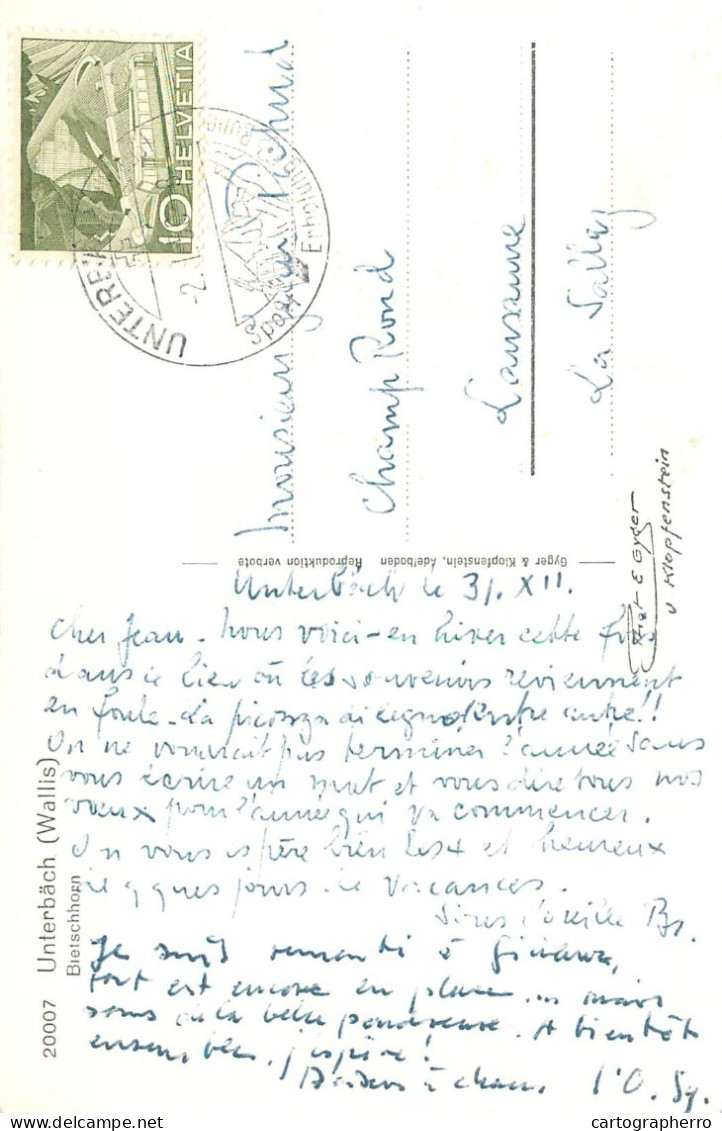 HELVETIA
10
UNTERB
2.
Sport
Erholung
Ruhe
Monsieur Jean
Champ Rond
Lausanne
La Sallaz
Gyger & Klopfenstein, Adelboden Reproduktion verbote
& Gyger
v Klopfenstein
Unterbäch le 31. XII.
Cher Jean - Nous voici - en hiver cette fois
dans ce lieu où les souvenirs reviennent
en foule - La entre autre!!
On ne voudrait pas terminer l'année sans
vous écrire un mot et vous dire tous nos
vœux pour l'année qui va commencer.
On vous espère bien et heureux
de qques jours de vacances.
Je suis remonté à
tout est encore en place ... mais
sous de la belle poudreuse. A bientôt
ensemble, j'espère!
20007 Unterbäch (Wallis)
Bietschhorn
cartographerro